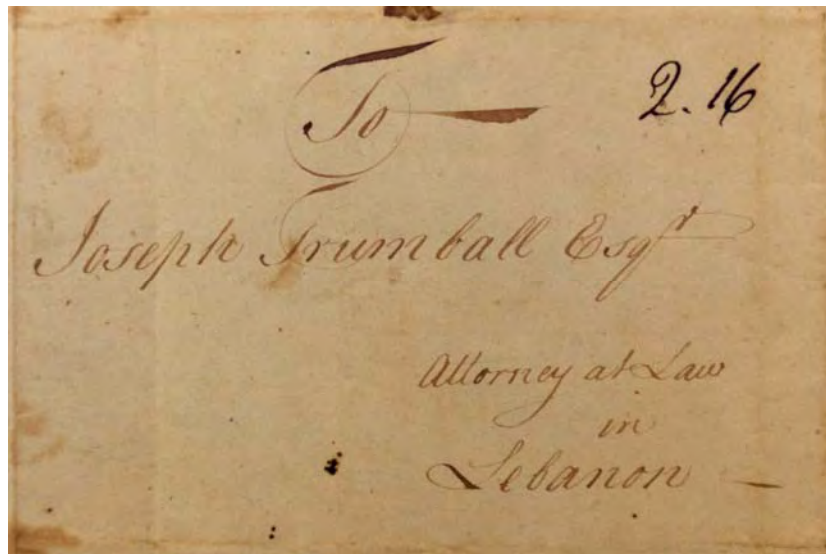 To
2.16
Joseph Trumball Esqr
Attorney at Law
in
Lebanon